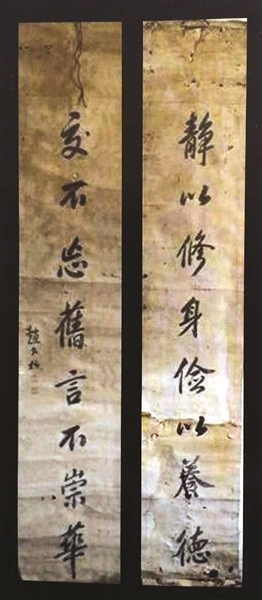 静以修身儉以養德
交不忘舊言不崇華